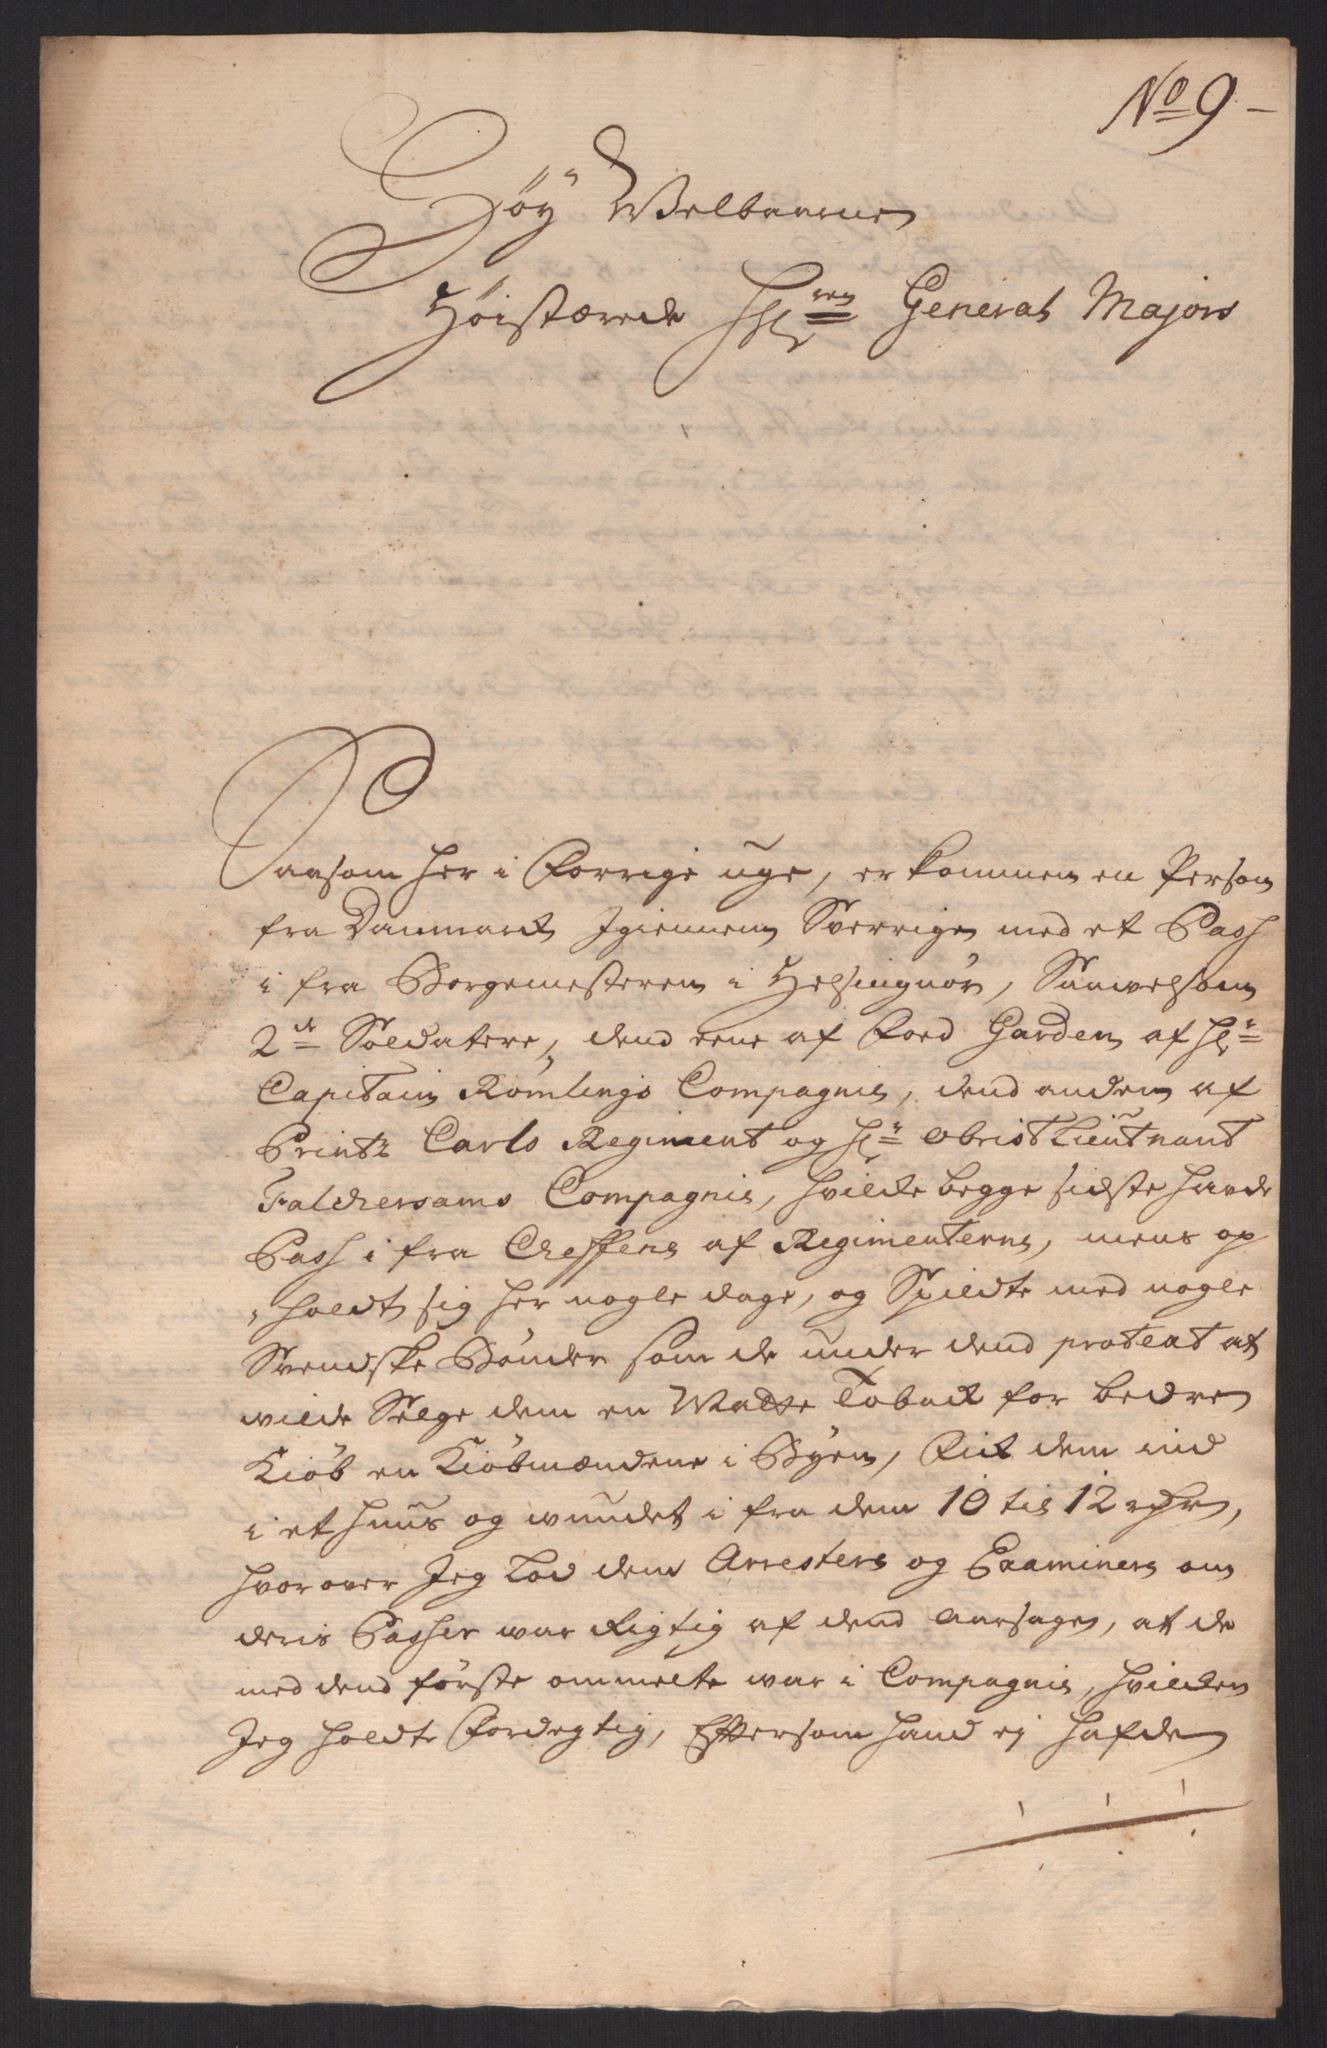 No 9 -
Høy Welbaarne
Høistærede Hr. ren General Major
Saasom her i Forrige uge, er kommen en Person
fra Danmarck Igiennem Sverrige med et Pass
i fra Borgemesteren i Helsingnør, Saavelsom
2de Soldatere, dend eene af Foed Garden af Hr.
Capitain Römlings Compagnie, dend anden af
Printz Carls Regiment og Hr. Obrist Lieutnant
Falchersams Compagnie, hvilcke begge sidste havde
Pass i fra Cheffene af Regimenterne, mens op
„holdt sig her nogle dage, og Spildte med nogle
Svendske Bønder som de under dend protext at
wilde Selge dem en Matte Toback for bedre
Kiøb en Kiøbmændene i Byen, Fick dem ind
i et huus og wundet i fra dem 10 til 12 rdr.,
hvorover Jeg Lod dem Arrestere og Examinere om
deris Passer war Rigtig af dend Aarsagen, at de
med dend første ommelte war i Compagnie, hvilcken
Jeg holdt Fordegtig, Effersom hand ej hafde